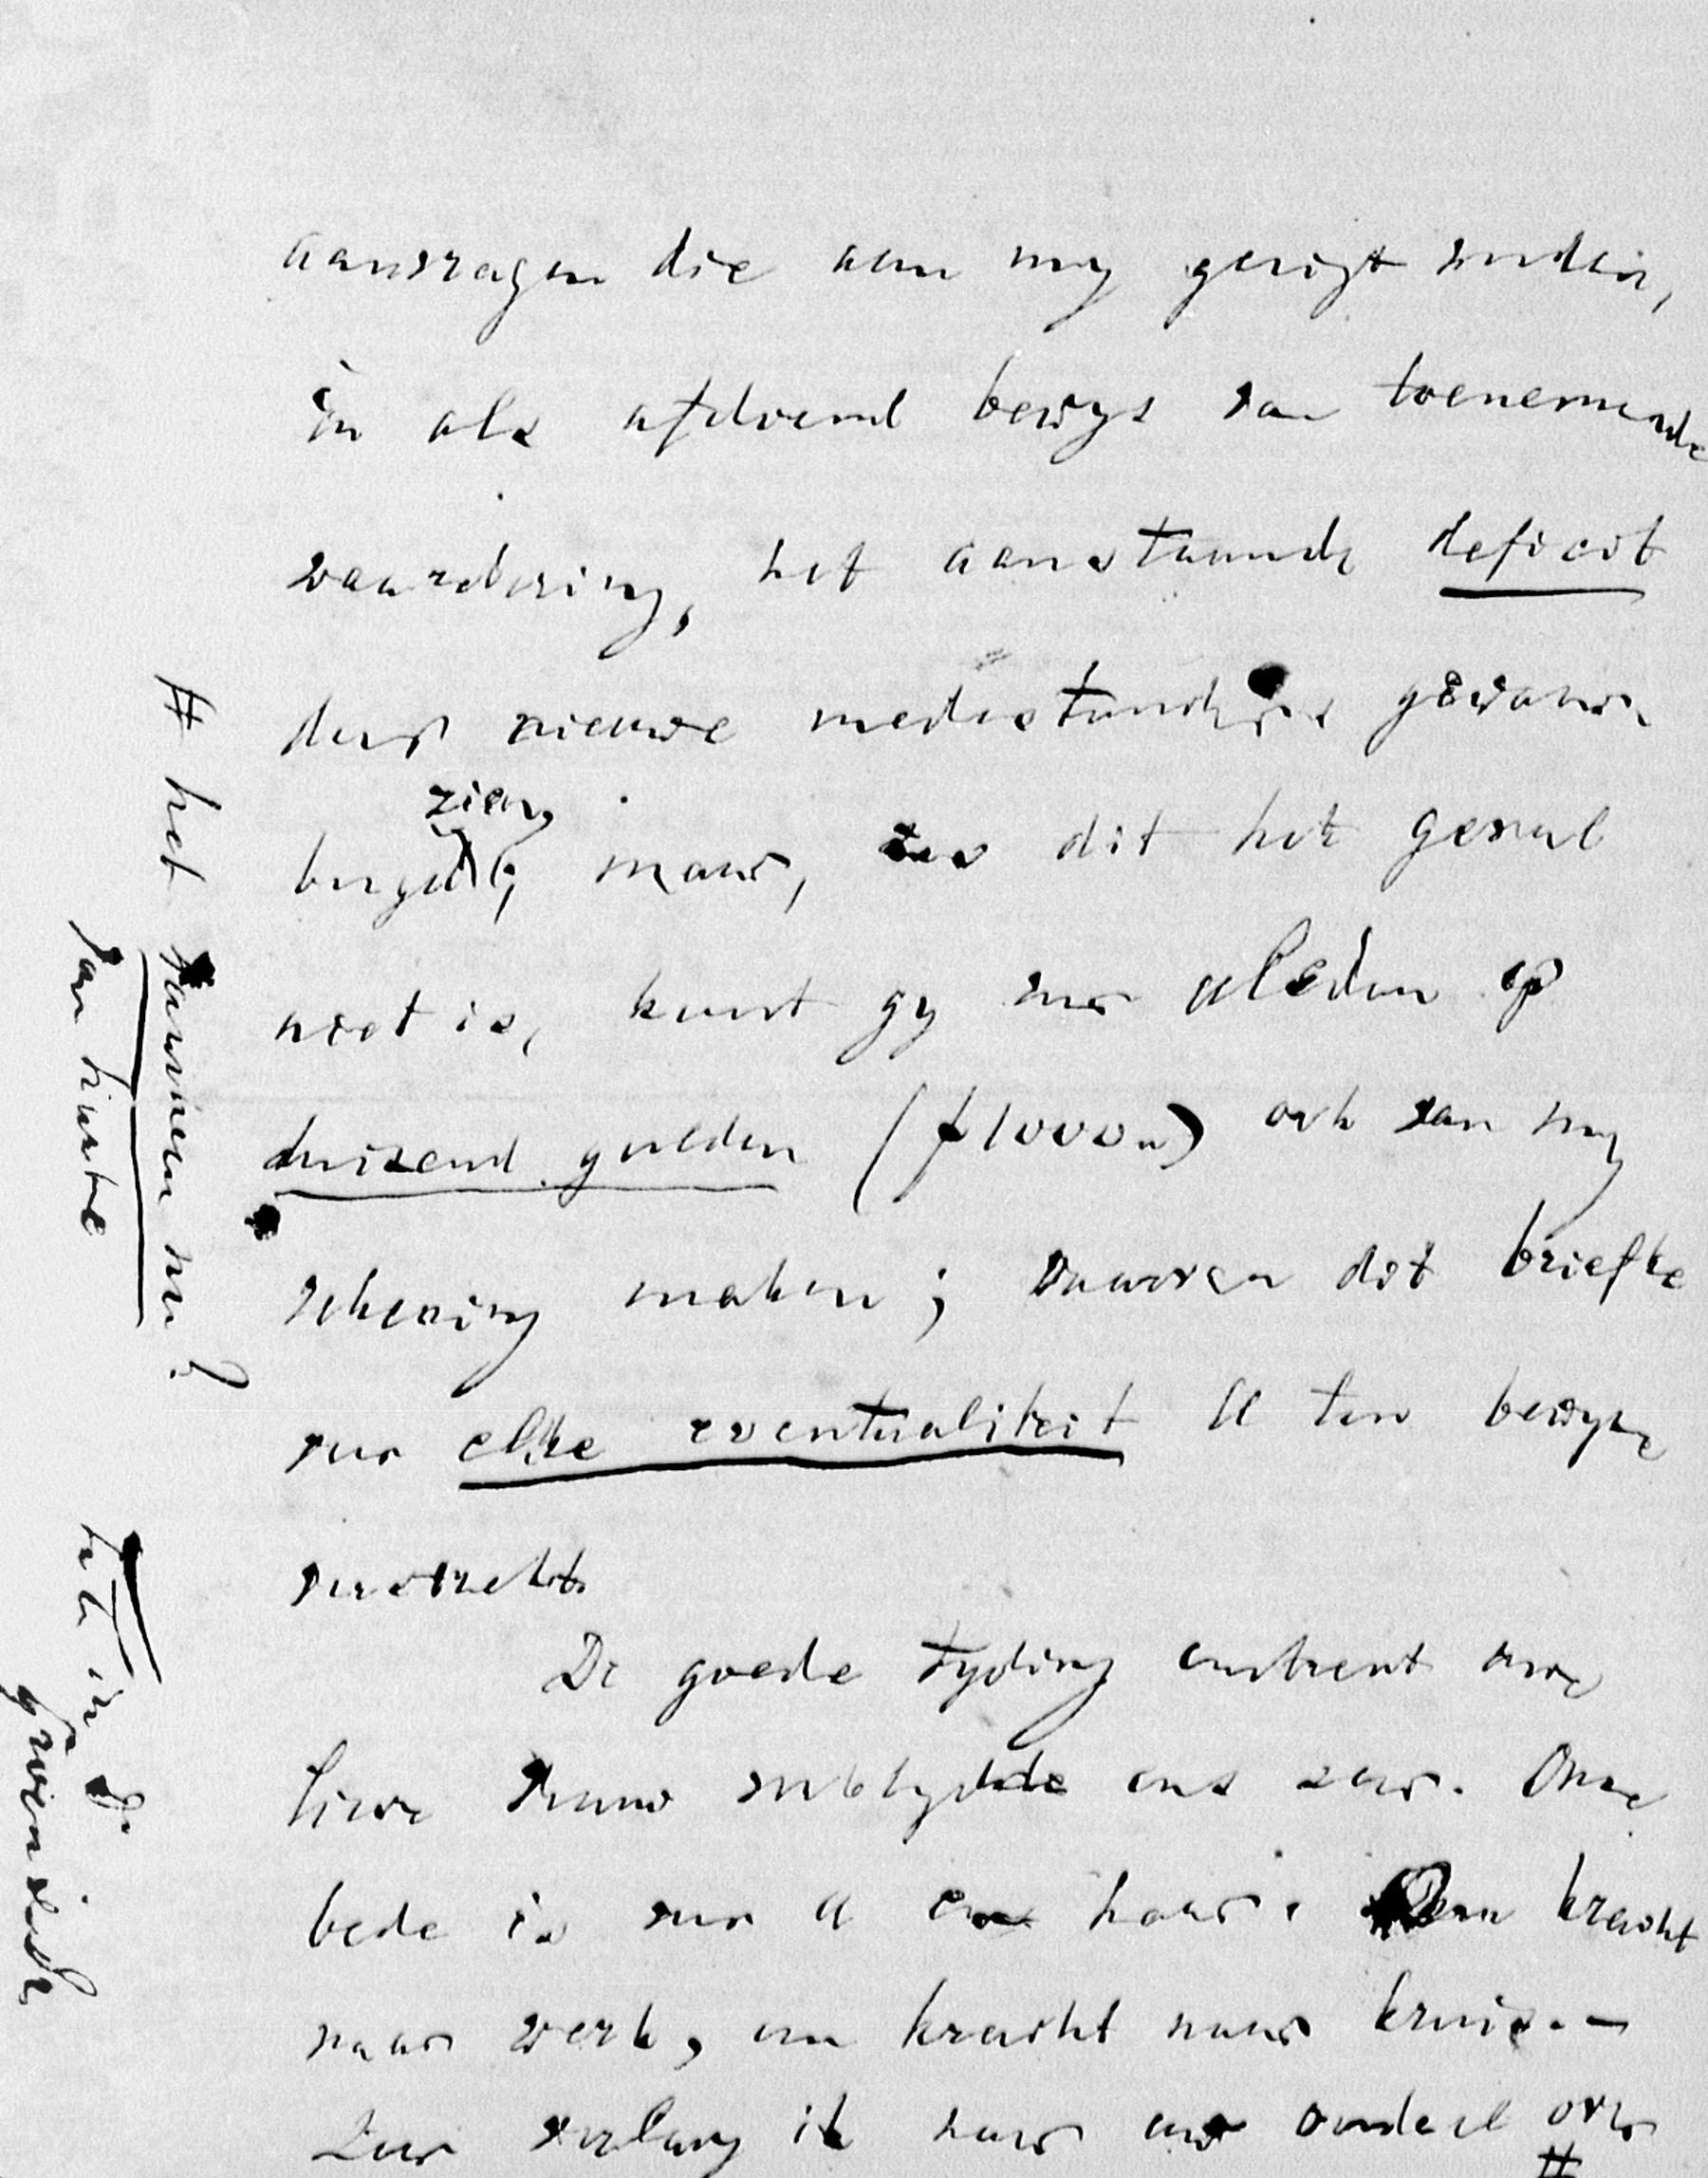 aanvragen die aan my gerigt worden,
en als afdoend bewys van toenemende
waardering, het aanstaande deficit
door nieuwe medestanders
zien,
maar, zoo dit het geval
niet is, kunt gy voor gulden op
duizend gulden (f 1000„) ook van my
rekening maken; waarvan dit briefke
voor elke eventualiteit U ten bewyze
verstrekt.
De goede tyding omtrent uwe
lieve vrouw verblydde ons zeer. Onze
bede is voor U en haar: kracht
naar werk, en kracht naar kruis. —
Zeer verlang ik naar uw oordeel over
#
# het Januari nr?
van hinte
in de